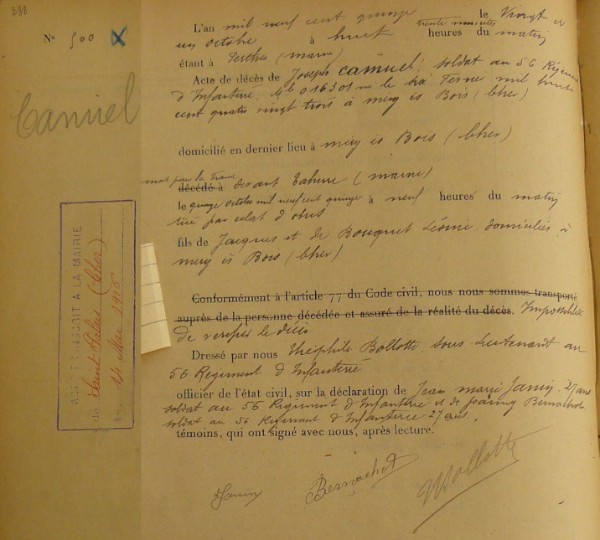 398
N° 500 X
Camuel
L'an mil neuf cent quinze le Vingt et
un octobre à huit heures trente minutes du matin
étant à Perthes (marne)
Acte de décès de Joseph Camuel, soldat au 56 Régiment
d'Infanterie. Mle 016301 né le huit
cent quatre vingt trois à mery is Bois (Cher)
domicilié en dernier lieu à mery is Bois (Cher)
mort pour la France
décédé à devant Tahure (marne)
le quinze octobre mil neuf cent quinze à neuf heures du matin
tué par eclat d'obus
fils de Jacques et de Bouquet Léonie domiciliés à
mery is Bois (Cher)
Conformément à l'article 77 du Code civil, nous nous sommes transporté
auprès de la personne décédée et assuré de la réalité du décès. Impossibilité
de verifier le décès
Dressé par nous Théophile Bollotte, sous-Lieutenant au
56 Regiment d'Infanterie
officier de l'état civil, sur la déclaration de Jean marie Jamy, 27 ans
soldat au 56 Regiment d'Infanterie et de Bernachot
soldat au 56 Regiment d'Infanterie 27 ans,
témoins, qui ont signé avec nous, après lecture.
Jamy Bernachot Bollotte
ACTE TRANSCRIT A LA MAIRIE
de Saint Palais (Cher)
14 Mai 1916